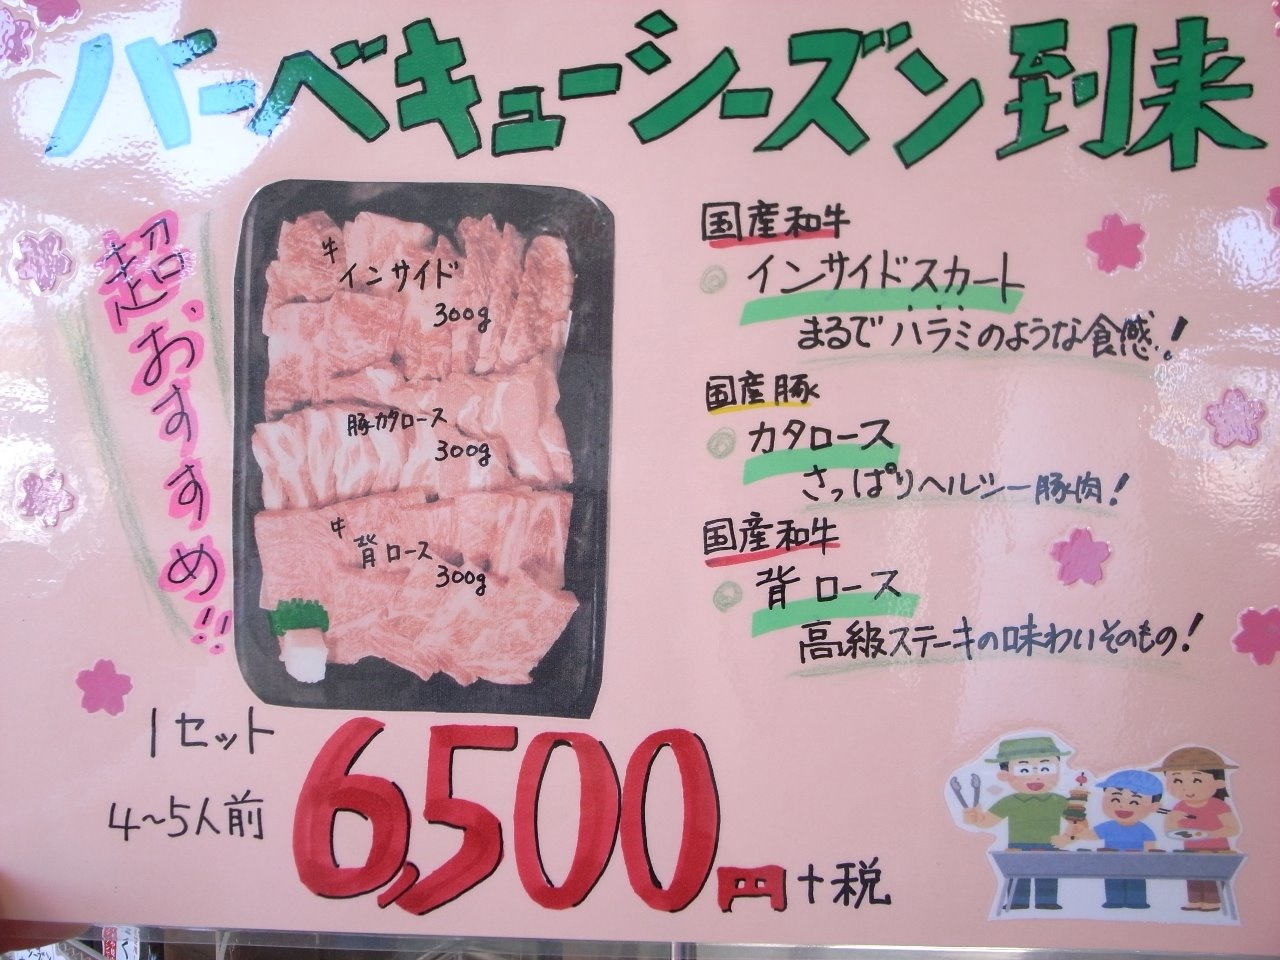 バーベキューシーズン到来
超おすすめ!!
牛
インサイド
300g
豚カタロース
300g
牛
背ロース
300g
国産和牛
インサイドスカート
まるでハラミのような食感!
国産豚
カタロース
さっぱりヘルシー豚肉!
国産和牛
背ロース
高級ステーキの味わいそのもの!
1セット
4~5人前
6,500円+税